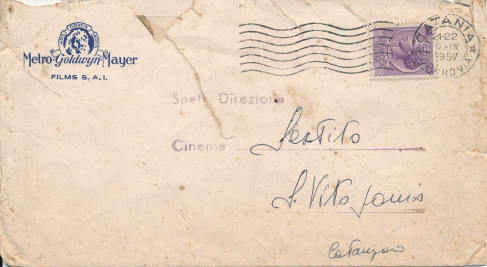 Metro-Goldwyn-Mayer
FILMS S. A. I.
CATANIA
21-22
IX
1957
FERROVIA
Spett. Direzione
Cinema
S. Vito Jonio
Catanzaro